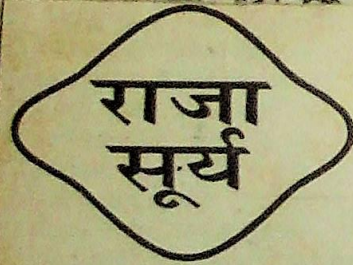 राजा
सूर्य